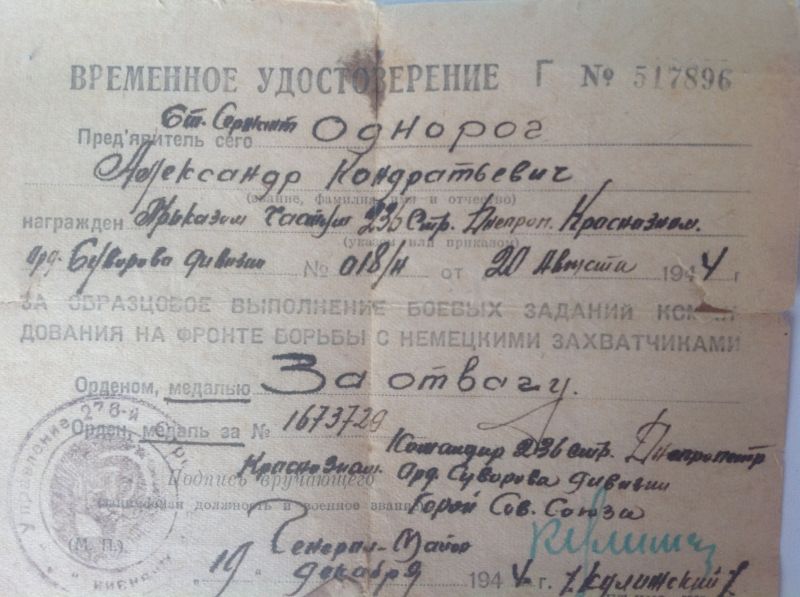 ВРЕМЕННОЕ УДОСТОВЕРЕНИЕ Г № 517896
Пред'явитель сего Ст. Сержант Однорог
Александр Кондратьевич
(звание, фамилия, имя и отчество)
награжден Приказом Частям 236 Стр. Днепроп. Краснознам.
(указом или приказом)
Орд. Суворова дивизии № 018/н от 20 Августа 1944 г
ЗА ОБРАЗЦОВОЕ ВЫПОЛНЕНИЕ БОЕВЫХ ЗАДАНИЙ КОМАН
ДОВАНИЯ НА ФРОНТЕ БОРЬБЫ С НЕМЕЦКИМИ ЗАХВАТЧИКАМИ
Орденом, медалью За отвагу.
Орден, медаль за № 1673729
Командир 236 стр. Днепропетр
Краснознам. Орд. Суворова дивизии
Подпись вручающего
Герой Сов. Союза
должность и военное звание
(М. П.) Генерал-Майор
"19" декабря 1944 г. /Кулижский/
Управление 276-й
дивизии